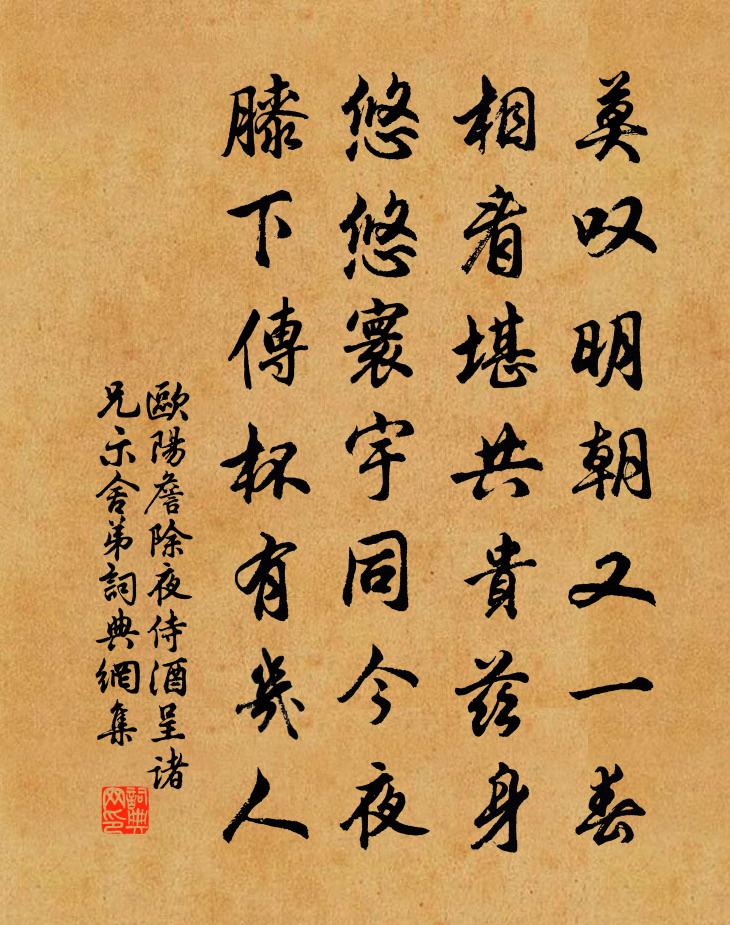 莫叹明朝又一春
相看堪共貴兹身
悠悠寰宇同今夜
膝下傳杯有幾人
歐陽詹除夜侍酒呈诸
兄示舍弟詞典網集
詞典网印